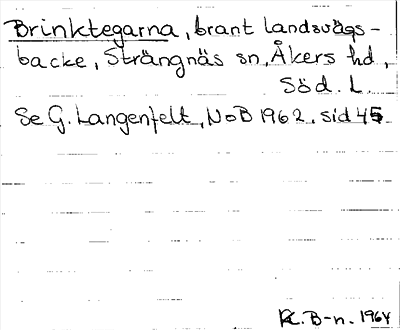 Brinktegarna, brant landsvägs-
backe, Strängnäs sn, Åkers hd,
Söd. L.
Se G. Langenfelt, NoB 1962, sid 45
R.C. B-n. 1964